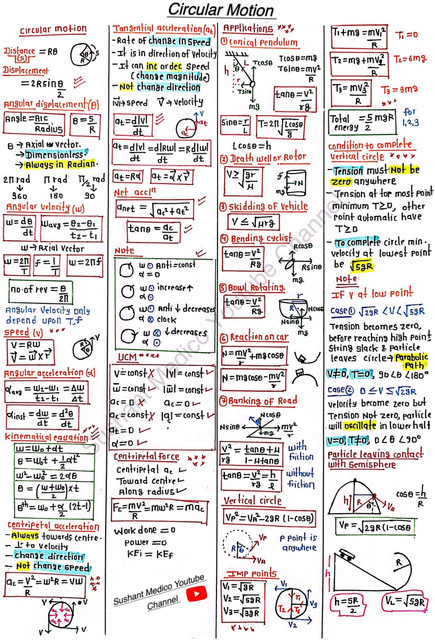 Circular Motion
circular motion
Distance = Rθ
(S)
Displacement
= 2R sin θ/2
Angular displacement (θ)
Angle = arc/Radius
θ = S/R
θ → Axial vector.
→ Dimensionless.
→ Always in Radian.
2π rad π rad π/2 rad
360 180 90
Angular velocity (w)
w = dθ/dt
wavg = θ2-θ1/t2-t1
w → Axial Vector
w = 2π/T
f = 1/T
w = 2πf
no. of rev = θ/2π
Angular Velocity Only
depend upon T, f
Speed (v)
V = RW
Angular acceleration (α)
αavg = w2-w1/t2-t1 = Δw/Δt
αinst = dw/dt = d²θ/dt²
Kinematical equation
w = w0+αt
θ = w0t + 1/2 αt²
w²-w0² = 2αθ
θ = (w+w0/2) x t
θnth = w0 + α/2 (2t-1)
Centripetal acceleration
- Always towards centre.
- ⊥ to velocity
- change direction
- Not change speed
ac = V²/R = w²R = VW
Tangential acceleration (at)
- Rate of change in speed
- It is in direction of velocity
- It can inc or dec speed
(change magnitude)
- Not change direction
|v| → speed v → velocity
at = d|v|/dt
at = d|v|/dt = dRw/dt = Rd|w|/dt
at = Rα
at = α x r
Net accn
anet = √ac²+at²
tanθ = ac/at
Note
w ⊙ Anti = const
α = 0
w ⊙ increase ↑
α ⊙
w ⊙ Anti ↓ decreases
α ⊗ clock
w ⊗ ↓ decreases
α ⊙
UCM
V = const ✗ |V| = const ✓
w = const ✓ |w| = const ✓
ac = const ✗ |a| = const ✓
ac = 0 ✗
at = 0 ✓
α = 0 ✓
Centripetal force
Centripetal ac ✓
Toward centre ✓
Along radius ✓
Fc = mv²/R = mw²R = mac
Work done = 0
Power = 0
KEi = KEf
Sushant Medico Youtube
Channel
Applications
① Conical pendulum
Tcosθ = mg
Tsinθ = mv²/r
tanθ = v²/rg
Sinθ = r/L
T = 2π√Lcosθ/g
Lcosθ = h
② Death well or Rotor
V ≥ √gr/μ
③ Skidding of Vehicle
V ≤ √μrg
④ Bending cyclist
tanθ = V²/rg
Rcosθ
Rsinθ
mg
⑤ Bowl Rotating
tanθ = V²/Rg
⑥ Reaction on car
N = mv²/r + mgcosθ
N = mgcosθ - mv²/r
⑦ Banking of Road
Nsinθ
Ncosθ
mg
V²/rg = tanθ+μ/1-μtanθ
with
friction
tanθ = v²/rg = h/l
without
friction
Vertical circle
Vp² = VA²-2gR (1-cosθ)
P point is
anywhere
IMP points
V1 = √gR
V2 = √5gR
V3 = √3gR
T1+mg = mv1²/R
T1 = 0
T2-mg = mv2²/R
T2 = 6mg
T3 = mv3²/R
T3 = 3mg
Total energy = 5/2 mgR
for
1,2,3
condition to complete
Vertical circle
- Tension must Not be
zero anywhere
- Tension at top most point
minimum T≥0, other
point automatic have
T≥0
- To complete circle min-
velocity at lowest point
be √5gR
Note
If V at low point
Case① √2gR < V < √5gR
Tension becomes zero,
before reaching high point
String slack & particle
leaves circle → Parabolic
Path
V≠0, T=0, 90<θ<180°
Case② 0 ≤ V ≤ √2gR
velocity become zero but
Tension not zero, particle
will oscillate in lower half
V=0, T≠0, 0<θ<90°
Particle leaving contact
with Semisphere
cosθ = h/R
Vp = √2gR(1-cosθ)
h = 5R/2
VL = √5gR